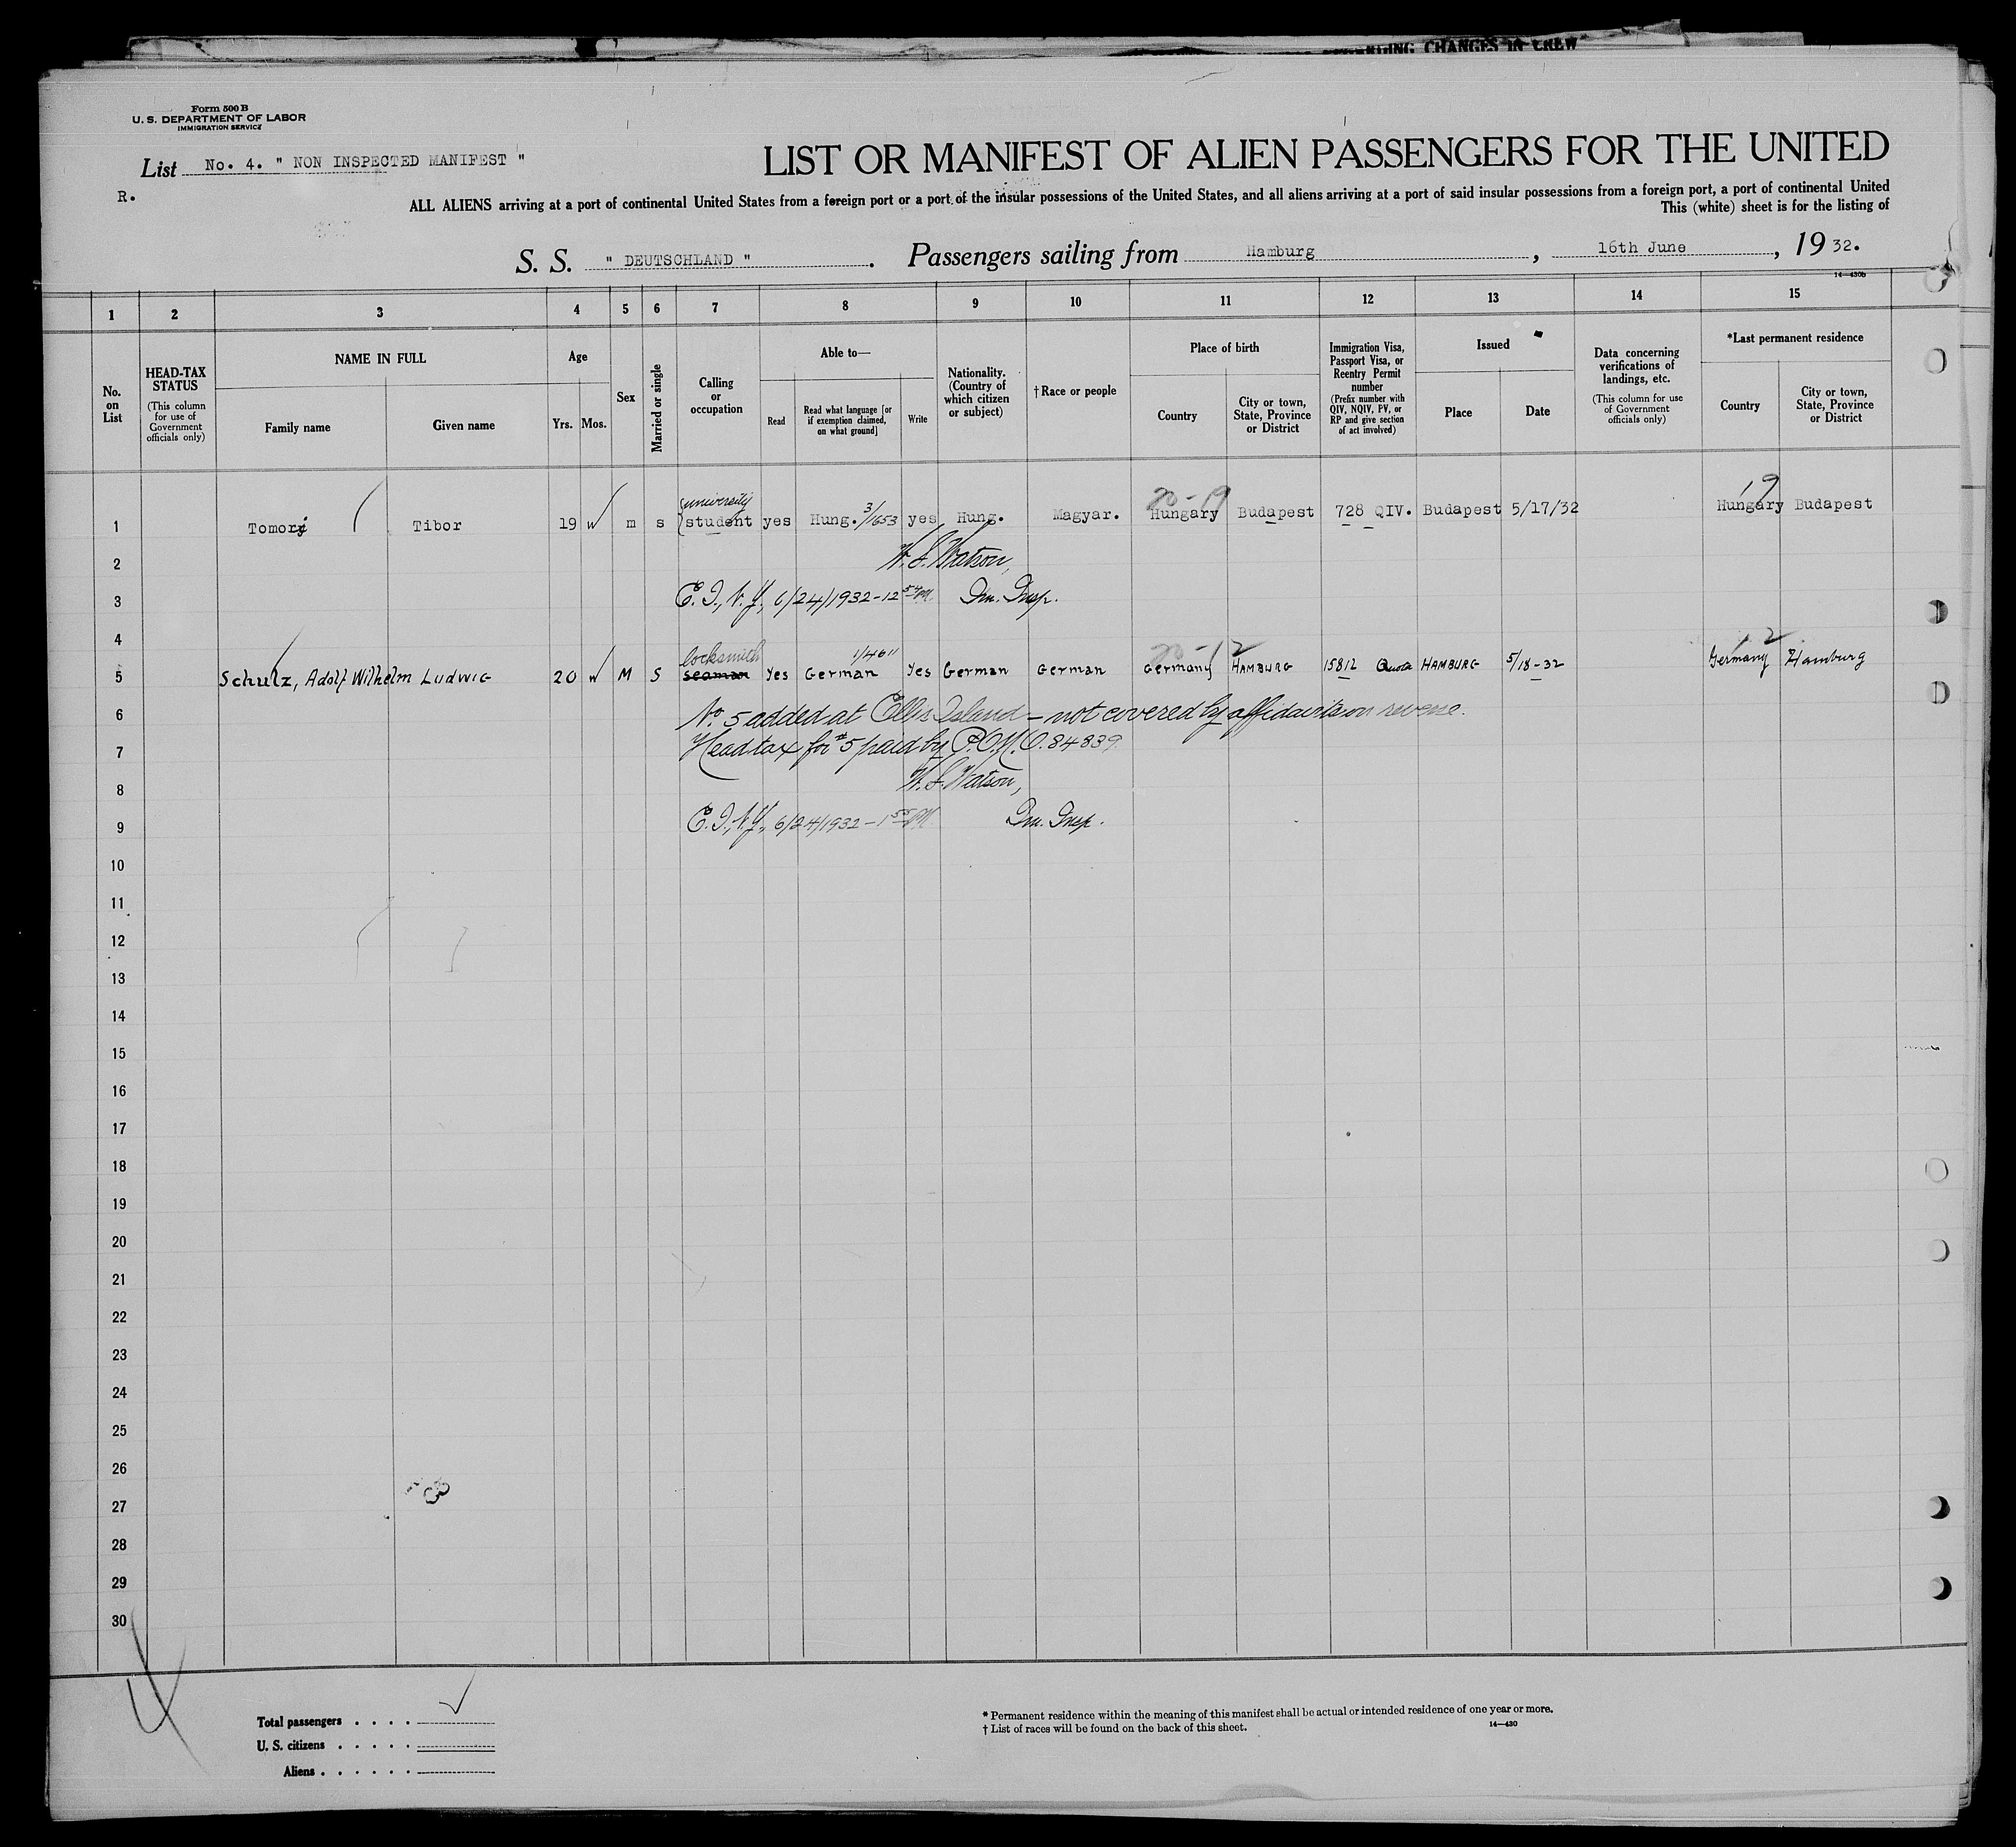 REGARDING CHANGES IN CREW"
Form 500 B
U. S. DEPARTMENT OF LABOR
IMMIGRATION SERVICE
List No. 4. " NON INSPECTED MANIFEST "
R.
LIST OR MANIFEST OF ALIEN PASSENGERS FOR THE UNITED
ALL ALIENS arriving at a port of continental United States from a foreign port or a port of the insular possessions of the United States, and all aliens arriving at a port of said insular possessions from a foreign port, a port of continental United
This (white) sheet is for the listing of
S. S. " DEUTSCHLAND ". Passengers sailing from Hamburg, 16th June, 1932.
14—430b
1 2 3 4 5 6 7 8 9 10 11 12 13 14 15
No. on List
HEAD-TAX STATUS
(This column for use of Government officials only)
NAME IN FULL
Family name
Given name
Age
Yrs. Mos.
Sex
Married or single
Calling or occupation
Able to—
Read
Read what language [or if exemption claimed, on what ground]
Write
Nationality. (Country of which citizen or subject)
† Race or people
Place of birth
Country
City or town, State, Province or District
Immigration Visa, Passport Visa, or Reentry Permit number
(Prefix number with QIV, NQIV, PV, or RP and give section of act involved)
Issued
Place
Date
Data concerning verifications of landings, etc.
(This column for use of Government officials only)
*Last permanent residence
Country
City or town, State, Province or District
university 3/1653 20-19 19
1 Tomori Tibor 19 m s student yes Hung. yes Hung. Magyar. Hungary Budapest 728 QIV. Budapest 5/17/32 Hungary Budapest
2 W. J. Watson,
3 E. I., N. Y., 6/24/1932 - 12 50 PM. Im. Insp.
4
locksmith 1/4611 20-12 12
5 Schulz, Adolf Wilhelm Ludwig 20 M S seaman Yes German Yes German German Germany HAMBURG 15812 Quota HAMBURG 5/18-32 Germany Hamburg
6 No. 5 added at Ellis Island - not covered by affidavits on reverse.
7 Head tax for #5 paid by P.O.M.O. 84839.
8 W. J. Watson,
9 E. I., N. Y., 6/24/1932 - 1 55 PM. Im. Insp.
10
11
12
13
14
15
16
17
18
19
20
21
22
23
24
25
26
27
28
29
30
4
Total passengers . . . .
U. S. citizens . . . . .
Aliens . . . . . .
* Permanent residence within the meaning of this manifest shall be actual or intended residence of one year or more.
† List of races will be found on the back of this sheet.
14—430